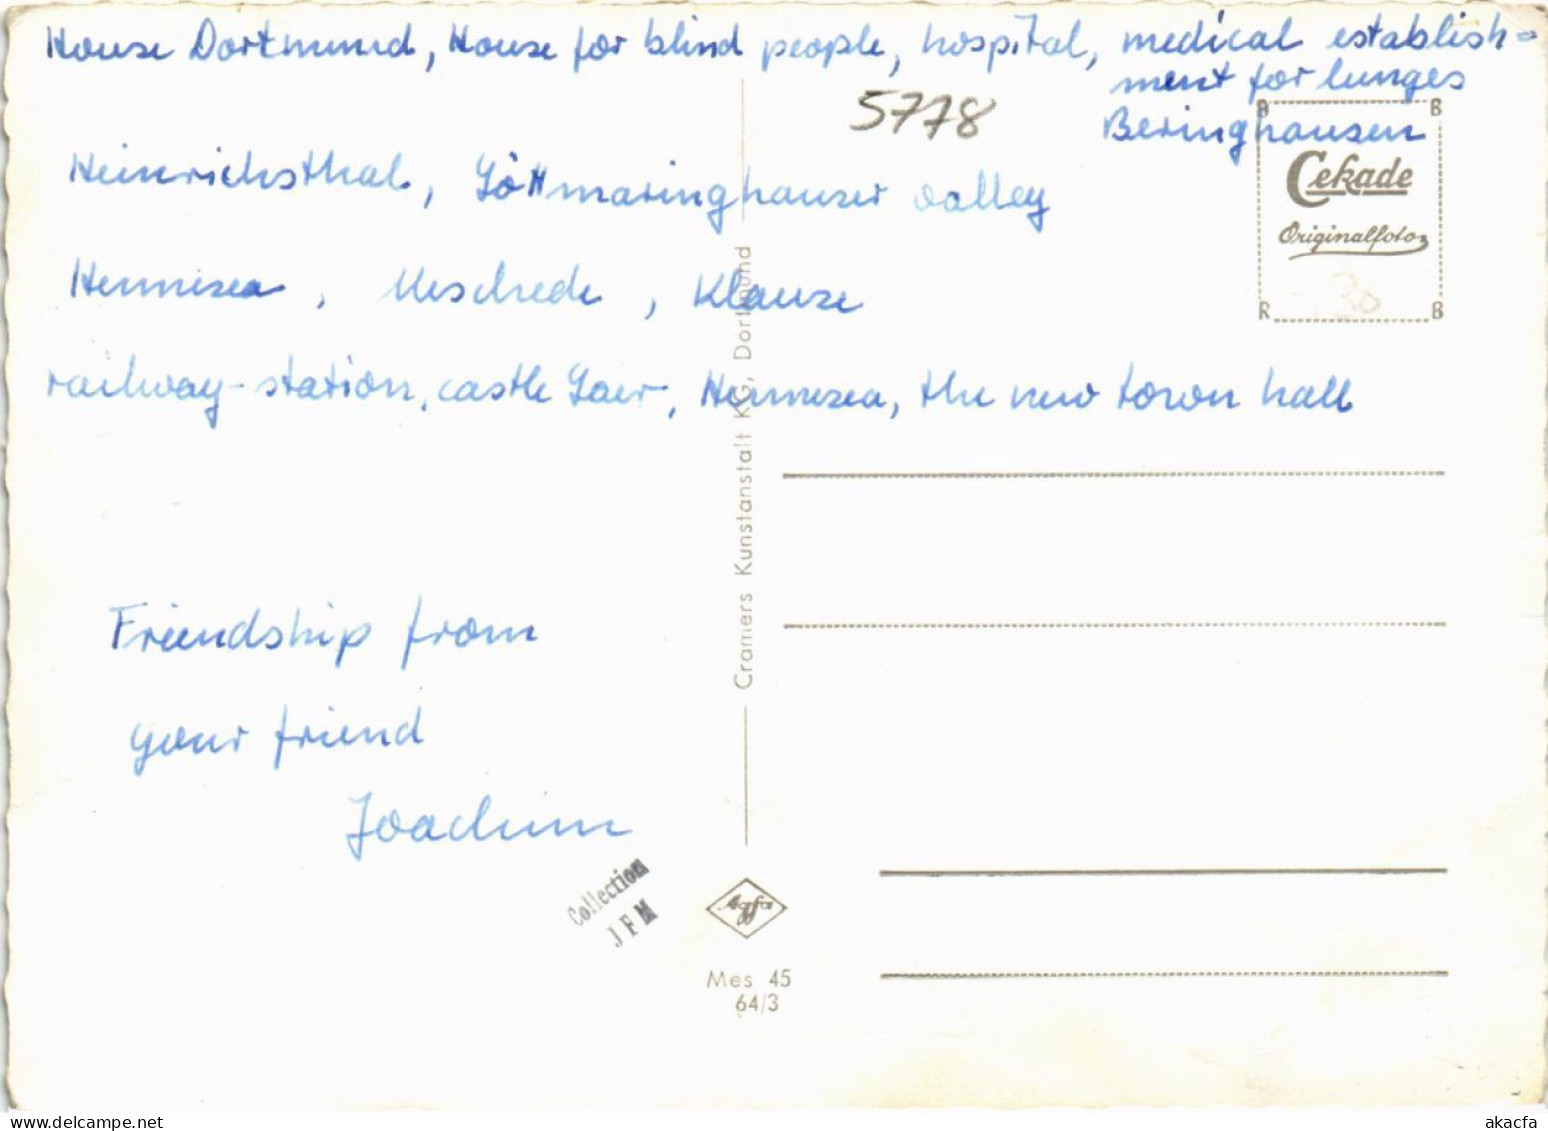 House Dortmund, House for blind people, hospital, medical establish=
ment for lunges
Beringhausen
5778
Heinrichsthal, Löttmaringhauser valley
Hennesea, Meschede, Klause
railway-station, castle Laer, Hennesea, the new town hall
Friendship from
your friend
Joachim
Collection
J F M
Cramers Kunstanstalt KG, Dortmund
Agfa
Mes 45
64/3
B B
Cekade
Originalfoto
R B
akacfa